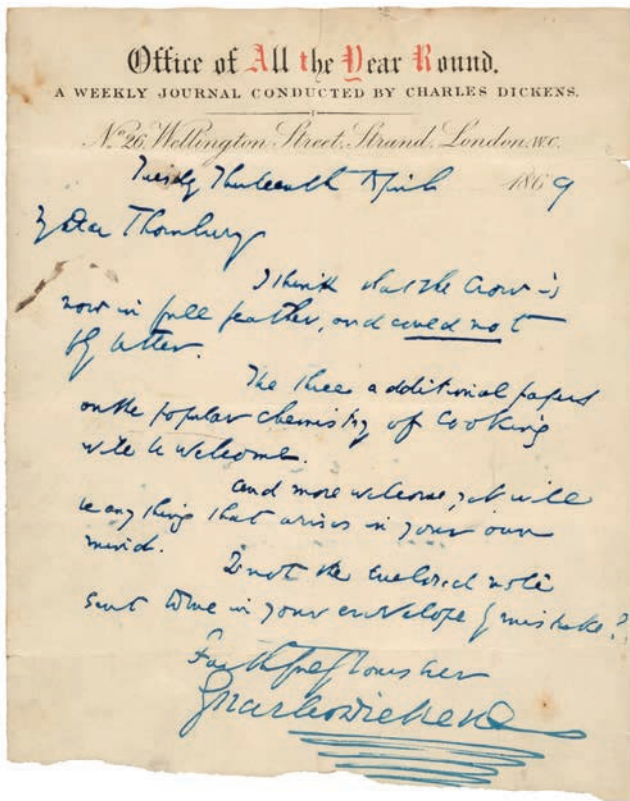 Office of All the Year Round.
A WEEKLY JOURNAL CONDUCTED BY CHARLES DICKENS.
No. 26, Wellington Street, Strand, London, W.C.
Tuesday Thirteenth April 1869
My Dear Thornbury
I think that the Crow is
now in full feather, and could not
fly better.
The three additional papers
on the popular chemistry of Cooking
will be welcome.
And more welcome yet will
be any thing that arises in your own
mind.
Is not the enclosed note
sent to me in your envelope by mistake?
Faithfully Yours ever
Charles Dickens